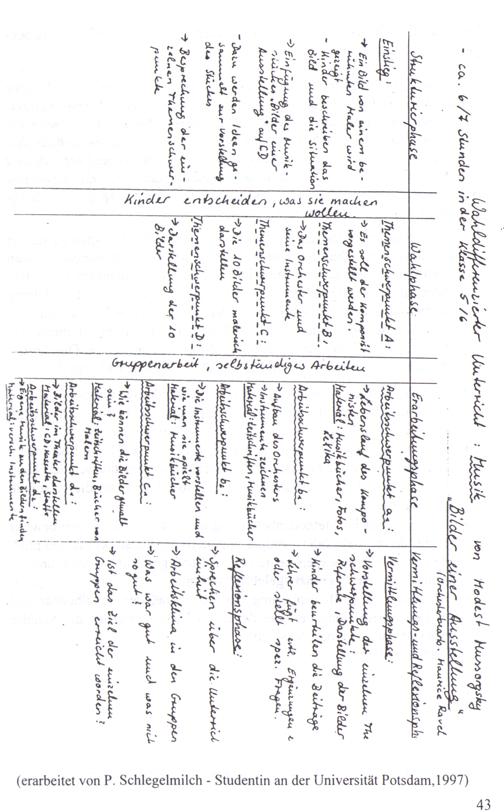 Wahldifferenzierter Unterricht Musik
- ca. 6/7 Stunden in der Klasse 5/6
von Modest Mussorgsky
"Bilder einer Ausstellung"
(Orchesterbearb. Maurice Ravel
Strukturierphase
Einstieg:
→ Ein Bild von einem be-
rühmten Maler wird
gezeigt
- Kinder beschreiben das
Bild und die Situation
→ Einfügung des Musik-
stückes "Bilder einer
Ausstellung" auf CD
- Dazu werden Ideen ge-
sammelt zur Vorstellung
des Stückes
→ Besprechung der ein-
zelnen Themenschwer-
punkte
Kinder entscheiden, was sie machen
wollen.
Wahlphase
Themenschwerpunkt A:
→ Es soll der Komponist
vorgestellt werden.
Themenschwerpunkt B:
→ Das Orchester und
seine Instrumente
Themenschwerpunkt C:
→ Die 10 Bilder malerisch
darstellen
Themenschwerpunkt D:
→ Darstellung der 10
Bilder
Gruppenarbeit, selbständiges Arbeiten
Erarbeitungsphase
Arbeitsschwerpunkt a1:
→ Lebenslauf des Kompo-
nisten
Material: Musikbücher, Fotos,
Lexika
Arbeitsschwerpunkt b1:
→ Aufbau des Orchesters
→ Instrumente zeichnen
Material: Zeitschriften, Musikbücher
Arbeitsschwerpunkt b2:
→ Die Instrumente vorstellen und
wie man sie spielt
Material: Musikbücher
Arbeitsschwerpunkt c1:
→ Wie können die Bilder gemalt
sein?
Material: Zeitschriften, Bücher von
Malern
Arbeitsschwerpunkt d1:
→ Bilder im Theater darstellen
Material: CD, Kassette, Stoffe
Arbeitsschwerpunkt d2:
→ Eigene Musik zu den Bildern finden
Material: versch. Instrumente
Vermittlungs- und Reflexionsph
Vermittlungsphase:
→ Vorstellung der einzelnen The
schwerpunkte:
Referate, Darstellung der Bilder
→ Kinder beurteilen die Beiträge
→ Lehrer fügt evtl. Ergänzungen e
oder stellt spez. Fragen.
Reflexionsphase:
→ Sprechen über die Unterrich
einheit
→ Arbeitsklima in den Gruppen
→ Was war gut und was nich
so gut?
→ Ist das Ziel der einzelnen
Gruppen erreicht worden?
(erarbeitet von P. Schlegelmilch - Studentin an der Universität Potsdam,1997)
43